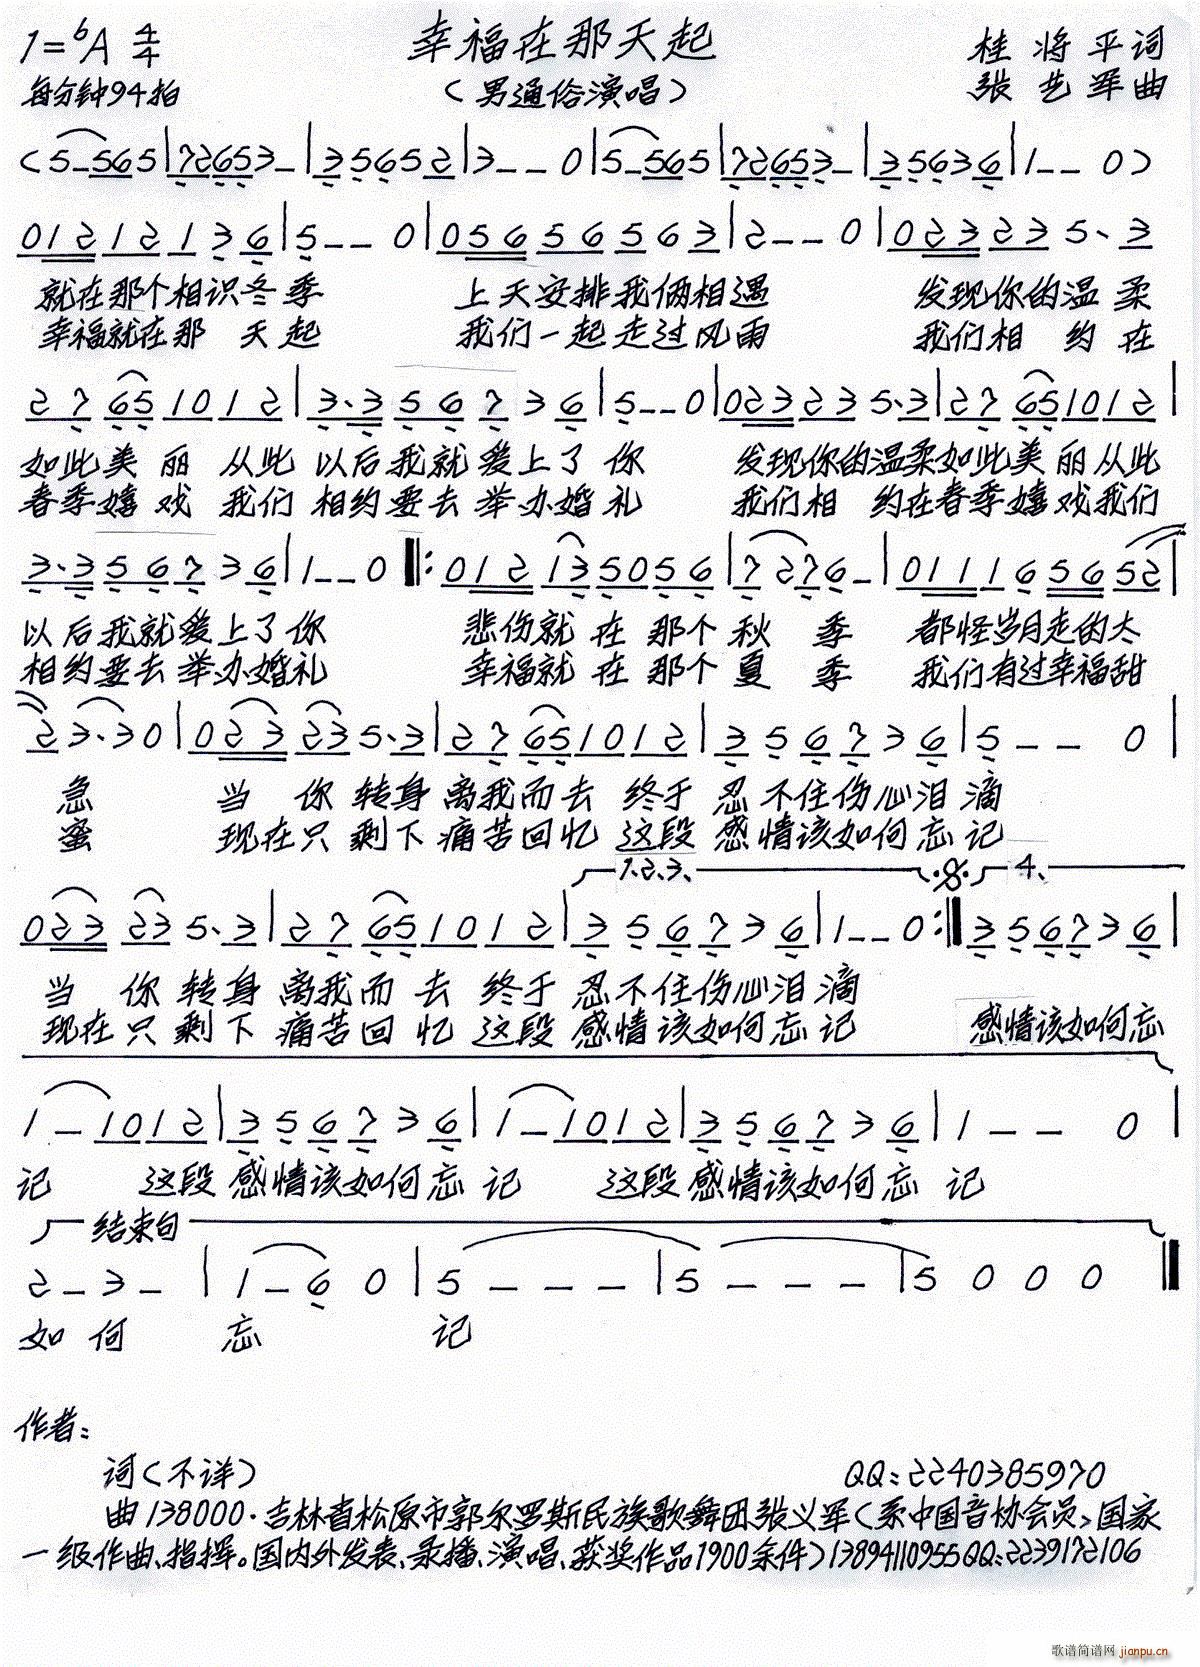 1=ᵇA 4/4 幸福在那天起 桂将平词
每分钟94拍 （男通俗演唱） 张艺军曲
(5-565|72653-|35652|3--0|5-565|72653-|35636|1--0)
01212136|5--0|05656563|2--0|023235、3
就在那个相识冬季 上天安排我俩相遇 发现你的温柔
幸福就在那 天起 我们一起走过风雨 我们相 约在
27651012|3、356736|5--0|023235、3|27651012|
如此美丽 从此 以后我就爱上了你 发现你的温柔如此美丽从此
春季嬉戏 我们 相约要去举办婚礼 我们相 约在春季嬉戏我们
3、356736|1--0‖:012135056|7276-|011165652|
以后我就爱上了你 悲伤就在那个秋季 都怪岁月走的太
相约要去举办婚礼 幸福就在那个夏季 我们有过幸福甜
23、30|023235、3|27651012|356736|5--0|
急 当 你转身离我而去 终于 忍不住伤心泪滴
蜜 现在只剩下痛苦回忆 这段 感情该如何忘记
1、2、3、 𝄋 4、
023235、3|27651012|356736|1--0:‖356736|
当 你转身离我而去 终于 忍不住伤心泪滴
现在只剩下痛苦回忆 这段感情该如何忘记 感情该如何忘
1-1012|356736|1-1012|356736|1--0|
记 这段感情该如何忘记 这段感情该如何忘记
结束句
2-3-|1-60|5---|5---|5000‖
如何 忘 记
作者：
词（不详） QQ：2240385970
曲138000·吉林省松原市郭尔罗斯民族歌舞团张义军（系中国音协会员、国家
一级作曲、指挥。国内外发表、录播、演唱、获奖作品1900余件）13894110955QQ：2239172106
歌谱简谱网 jianpu.cn